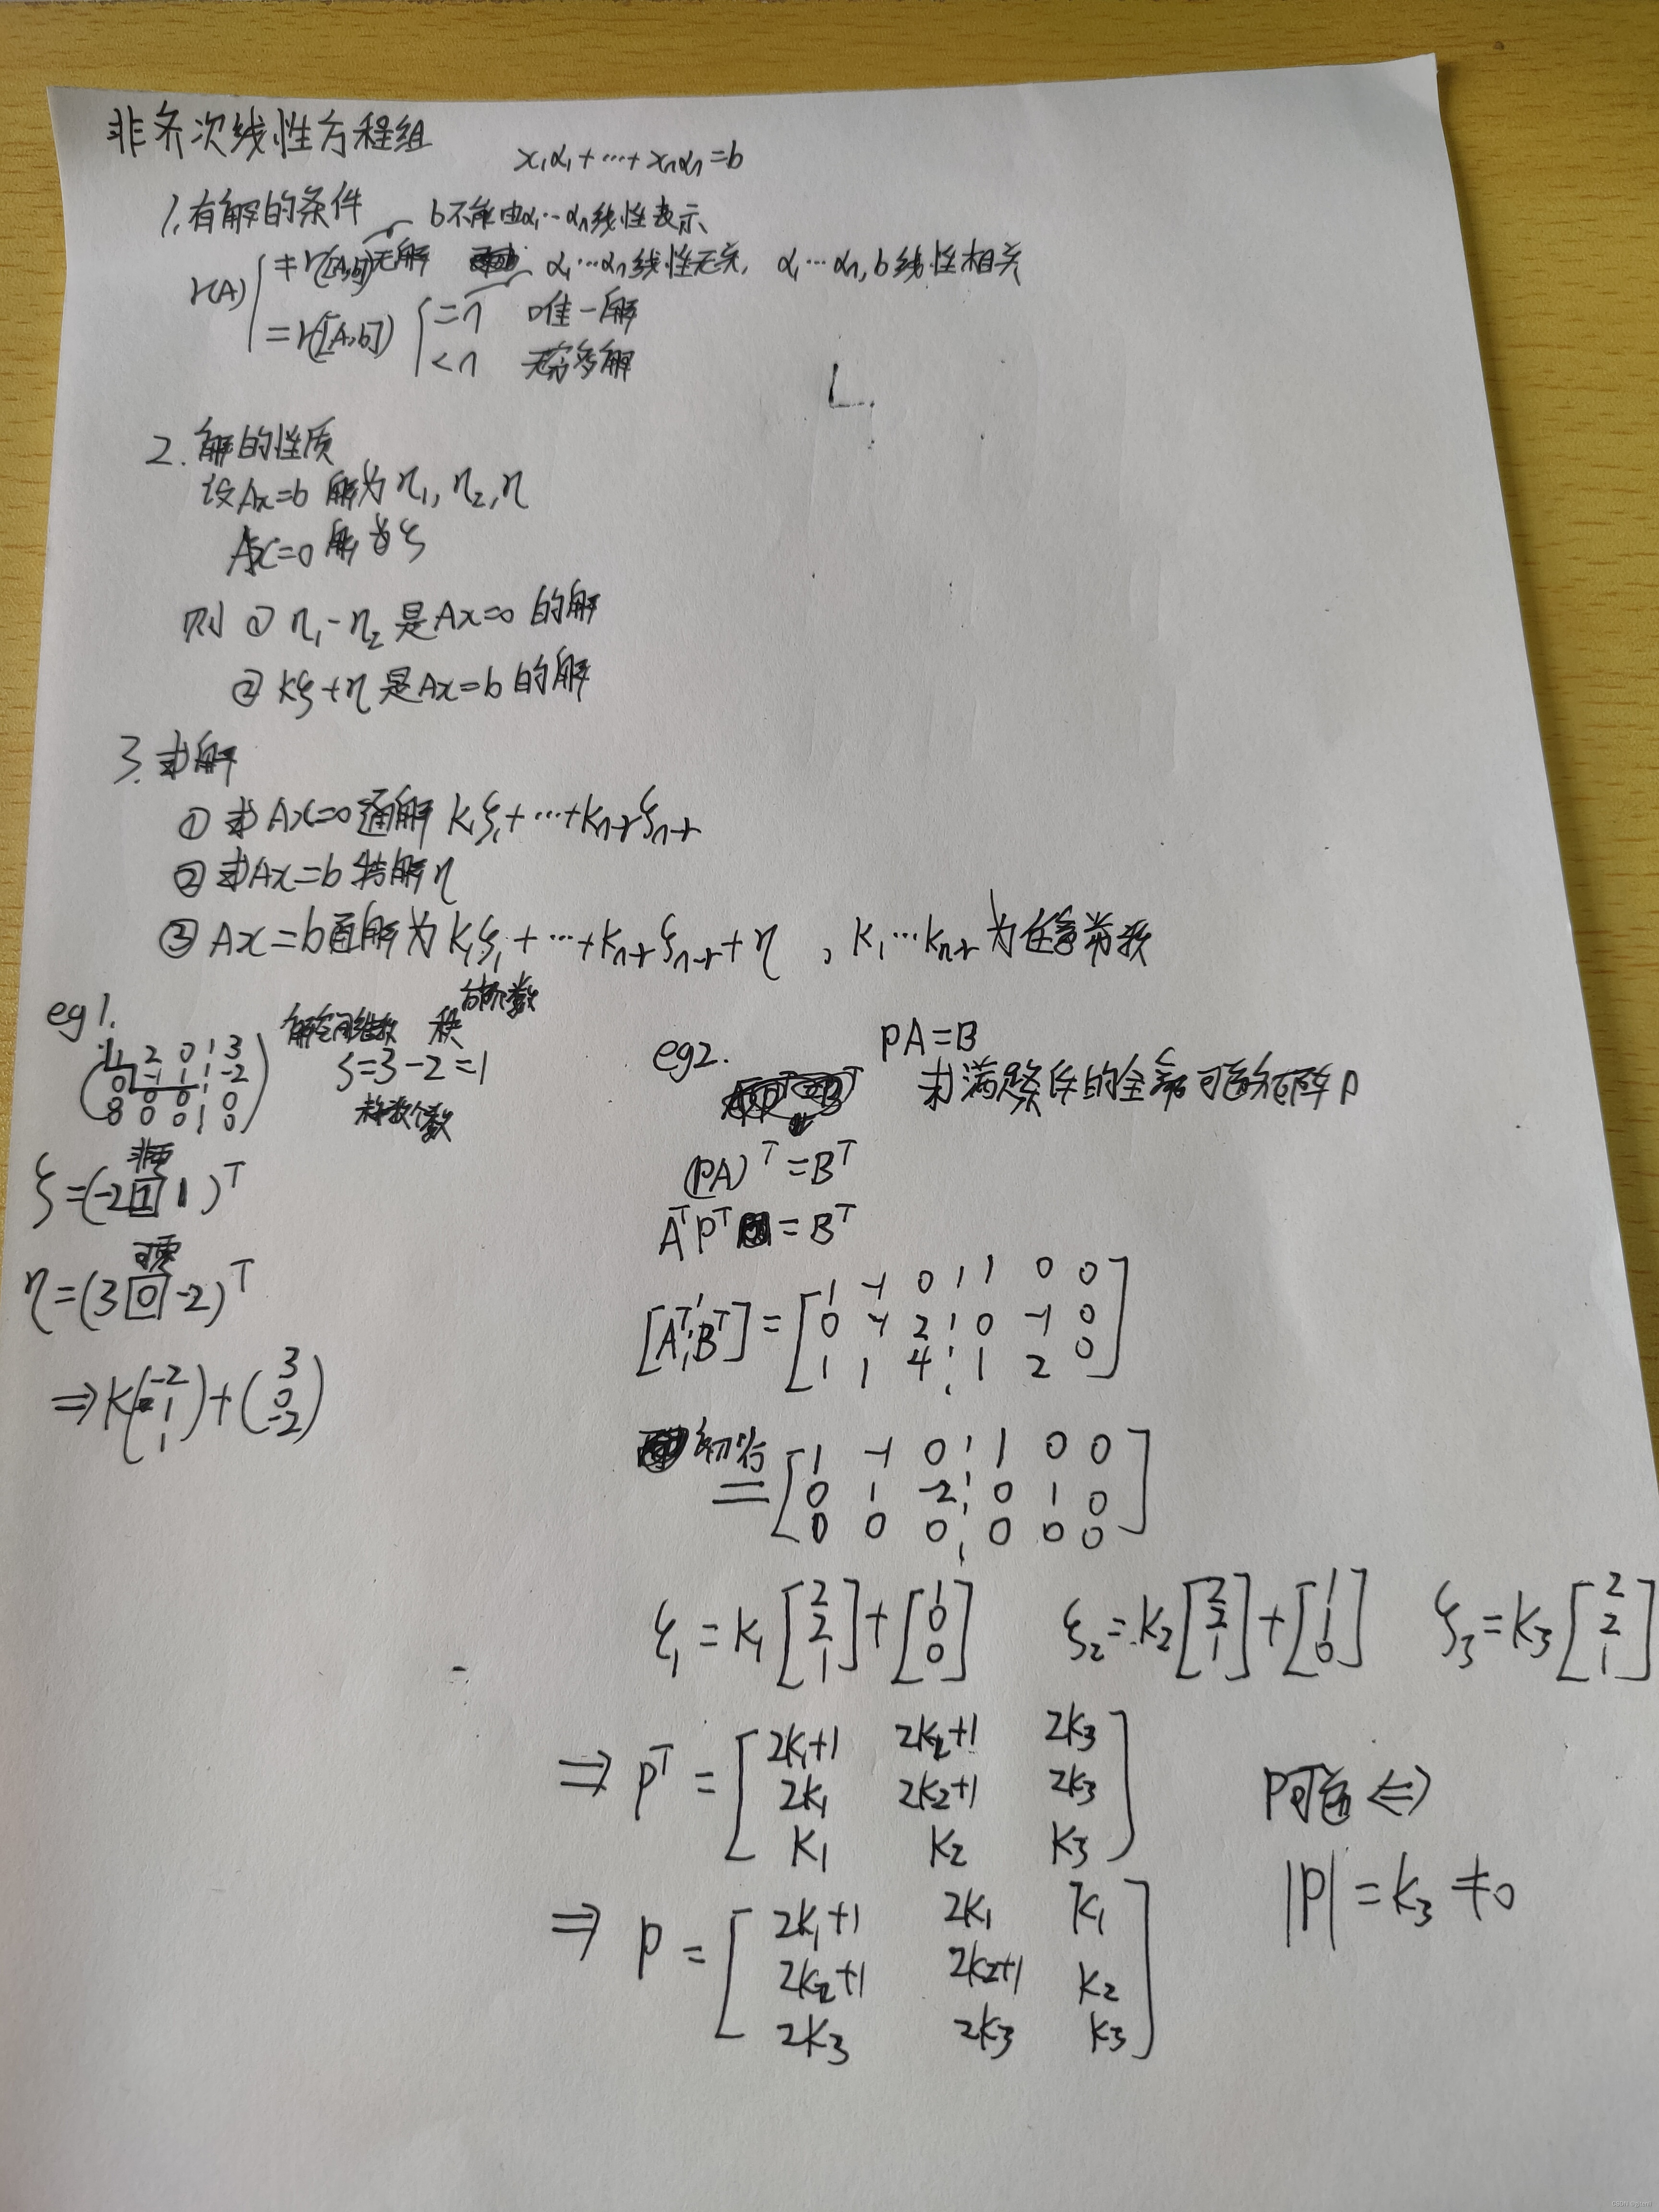 非齐次线性方程组
x₁α₁+⋯+xₙαₙ=b
1. 有解的条件
b不能由α₁⋯αₙ线性表示
r(A) { ≠r([A,b]) 无解
α₁⋯αₙ线性无关, α₁⋯αₙ,b线性相关
=r([A,b]) { =n 唯一解
<n 无穷多解
2. 解的性质
设Ax=b 解为η₁, η₂, η
Ax=0 解为ξ
则 ① η₁-η₂ 是Ax=0 的解
② kξ+η 是Ax=b 的解
3. 求解
① 求Ax=0通解 k₁ξ₁+⋯+kₙ₋ᵣξₙ₋ᵣ
② 求Ax=b 特解η
③ Ax=b通解为 k₁ξ₁+⋯+kₙ₋ᵣξₙ₋ᵣ+η , k₁⋯kₙ₋ᵣ 为任意常数
eg1.
解空间维数 秩 台阶数
1 2 0 ¦ 3
0 -1 1 ¦ -2
0 0 0 ¦ 0
0 0 0 ¦ 0
s=3-2=1
非零
ξ=(-2 1 1)ᵀ
可零
η=(3 0 -2)ᵀ
⇒ k(-2 1 1)+(3 0 -2)
eg2. PA=B
求满足条件的全部可逆矩阵P
(PA)ᵀ=Bᵀ
AᵀPᵀ=Bᵀ
[Aᵀ¦Bᵀ]= [ 1 -1 0 ¦ 1 0 0
0 -1 2 ¦ 0 -1 0
1 1 4 ¦ 1 2 0 ]
初等行
= [ 1 -1 0 ¦ 1 0 0
0 1 -2 ¦ 0 1 0
0 0 0 ¦ 0 0 0 ]
ξ₁=k₁[2 2 1]+[1 0 0] ξ₂=k₂[2 2 1]+[1 1 0] ξ₃=k₃[2 2 1]
⇒ Pᵀ= [ 2k₁+1 2k₂+1 2k₃
2k₁ 2k₂+1 2k₃
k₁ k₂ k₃ ]
P可逆 ⇔
|P|=k₃≠0
⇒ P= [ 2k₁+1 2k₁ k₁
2k₂+1 2k₂+1 k₂
2k₃ 2k₃ k₃ ]